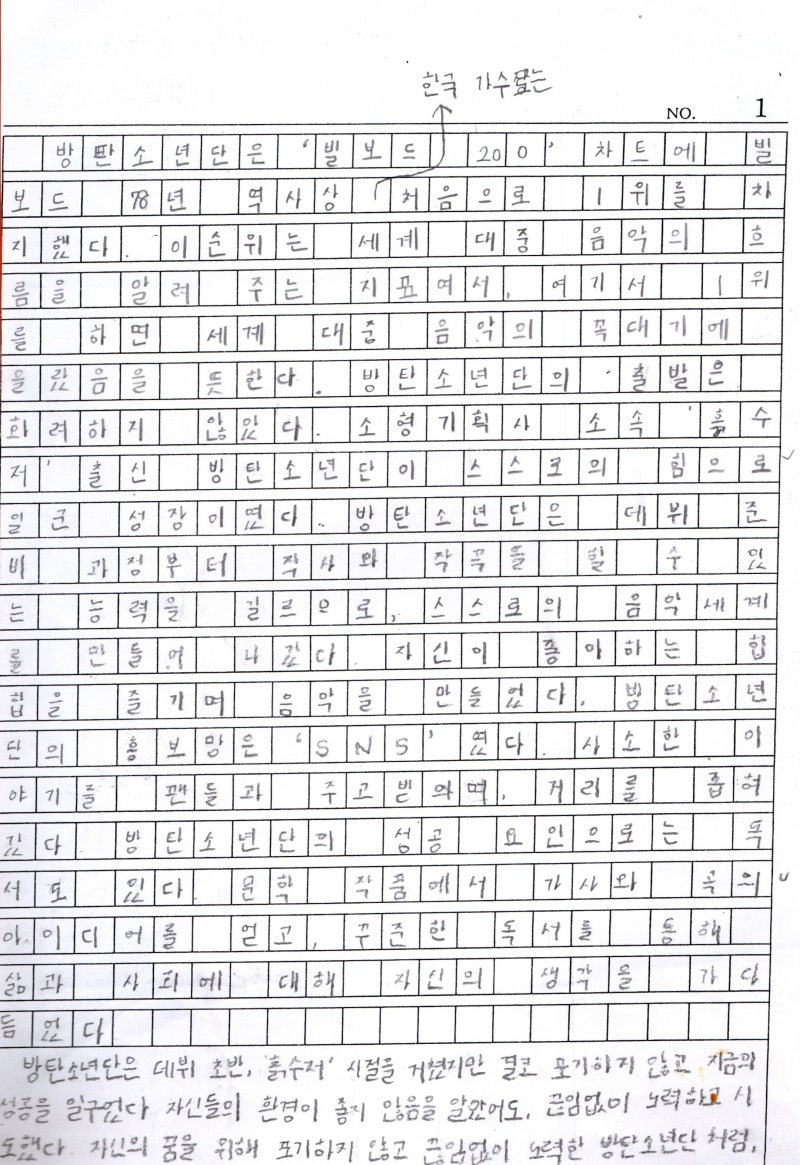 한국 가수로는
NO. 1
방탄소년단은 '빌보드 200' 차트에 빌
보드 78년 역사상 처음으로 1위를 차
지했다. 이순위는 세계 대중 음악의 흐
름을 알려 주는 지표여서, 여기서 1위
를 하면 세계 대중 음악의 꼭대기에
올랐음을 뜻한다. 방탄소년단의 출발은
화려하지 않았다. 소형기획사 소속 '흙수
저' 출신 방탄소년단이 스스로의 힘으로
일군 성장이였다. 방탄소년단은 데뷔 준
비 과정부터 작사와 작곡을 할 수 있
는 능력을 길르으로, 스스로의 음악세계
를 만들어 나갔다. 자신이 좋아하는 힙
합을 즐기며 음악을 만들었다. 방탄소년
단의 홍보망은 'SNS' 였다. 사소한 이
야기를 팬들과 주고받으며, 거리를 좁혀
갔다. 방탄소년단의 성공 요인으로는 독
서도 있다. 문학 작품에서 가사와 곡의
아이디어를 얻고, 꾸준한 독서를 통해
삶과 사회에 대해 자신의 생각을 가다
듬었다
방탄소년단은 데뷔 초반, '흙수저' 시절을 거쳤지만 결코 포기하지 않고 지금의
성공을 일구었다 자신들의 환경이 좋지 않음을 알았어도, 끊임없이 노력하고 시
도했다. 자신의 꿈을 위해 포기하지 않고 끊임없이 노력한 방탄소년단 처럼,